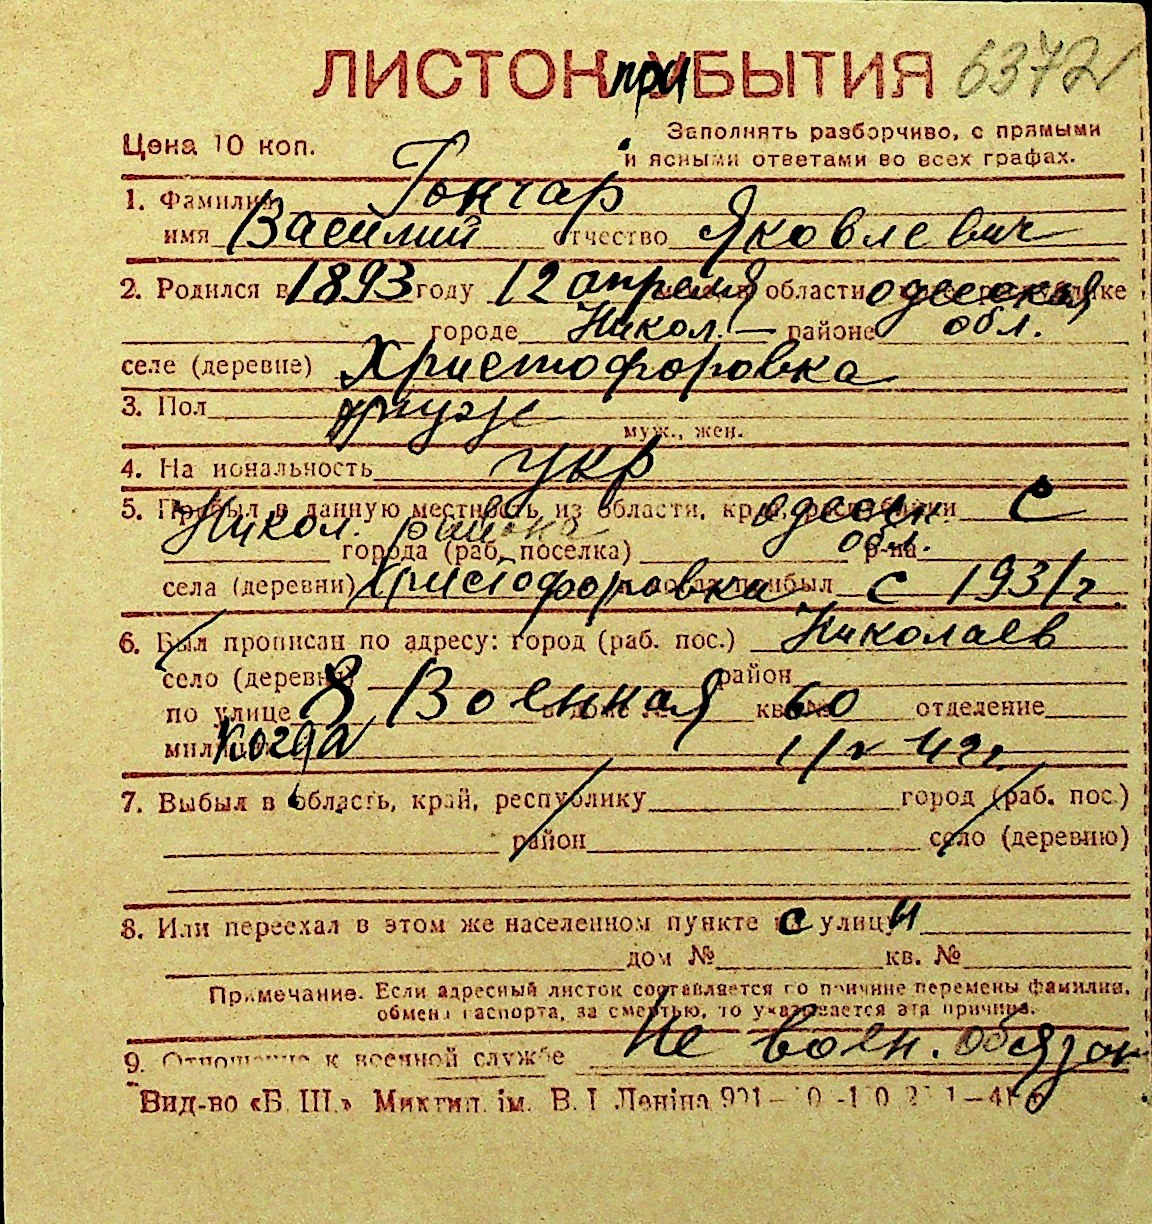 ЛИСТОК при УБЫТИЯ 6372
Цена 10 коп.
Заполнять разборчиво, с прямыми
и ясными ответами во всех графах.
1. Фамилия Гончар
имя Василий отчество Яковлевич
2. Родился в 1893 году 12 апреля области одесская
городе Никол. — районе обл.
селе (деревне) Христофоровка
3. Пол муж
муж., жен.
4. Национальность укр
5. Прибыл в данную местность из области, края, республики одесск. с
Никол. района обл.
города (раб. поселка) р-на
села (деревни) Христофоровка прибыл с 1931 г.
6. Был прописан по адресу: город (раб. пос.) Николаев
село (деревня) район
по улице 8 Военная кв. № 60 отделение
милиции когда 1/IV 42г.
7. Выбыл в область, край, республику город (раб. пос.)
район село (деревню)
8. Или переехал в этом же населенном пункте с улицы
дом № кв. №
Примечание. Если адресный листок составляется по причине перемены фамилии,
обмена паспорта, за смертью, то указывается эта причина.
9. Отношение к военной службе Не воен. обязан
Вид-во «Б. Ш.» Миктип. ім. В. І. Леніна